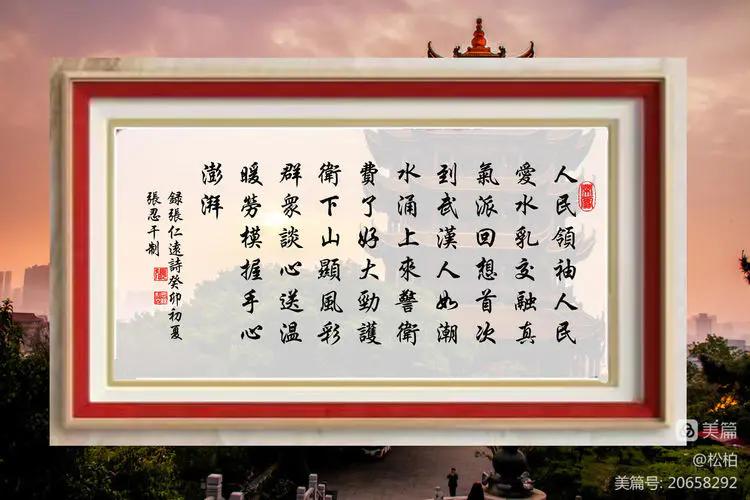 人民領袖人民
愛水乳交融真
氣派回想首次
到武漢人如潮
水涌上來警衛
費了好大勁護
衛下山顯風彩
群衆談心送溫
暖勞模握手心
澎湃
録張仁遠詩癸卯初夏
張忍千制
美篇
@松柏
美篇号: 20658292